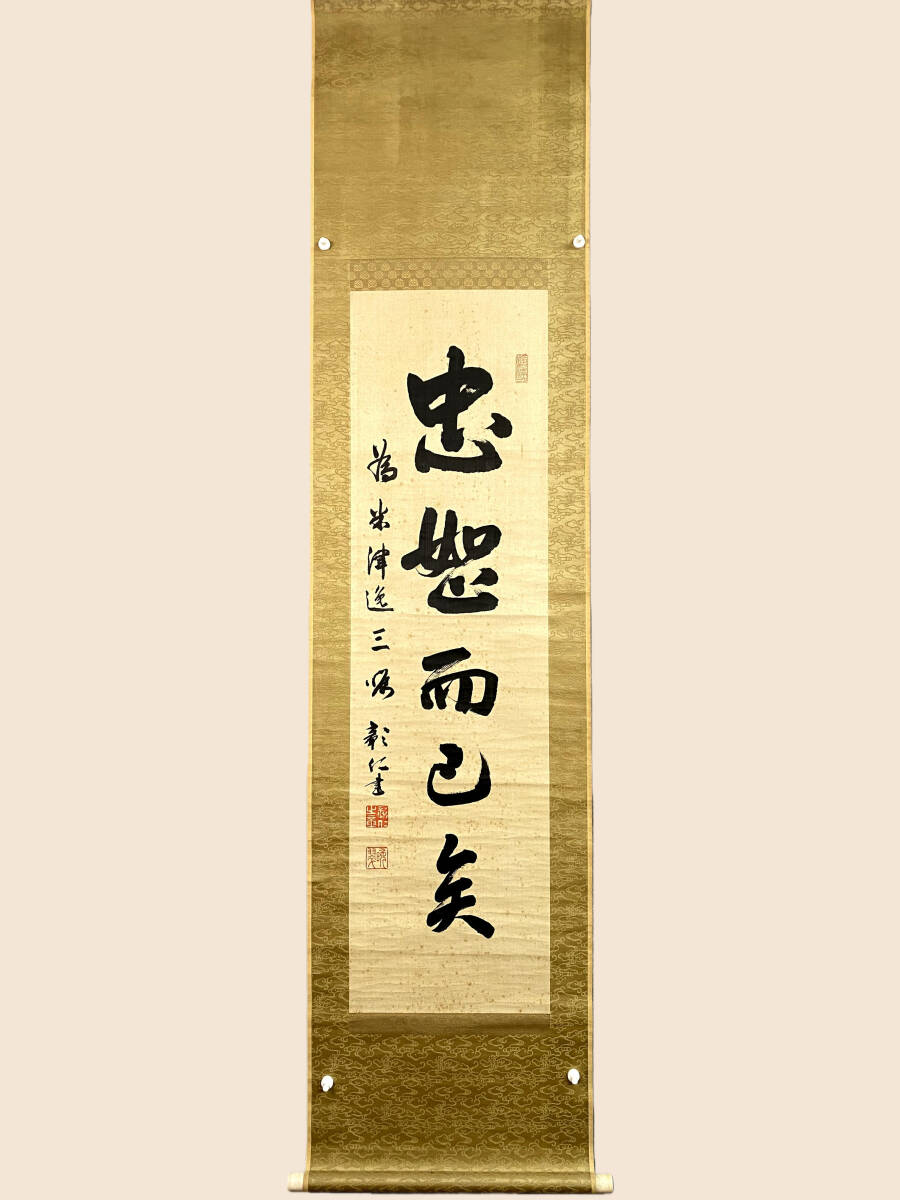 忠恕而已矣
為米津逸三嘱 彰仁書